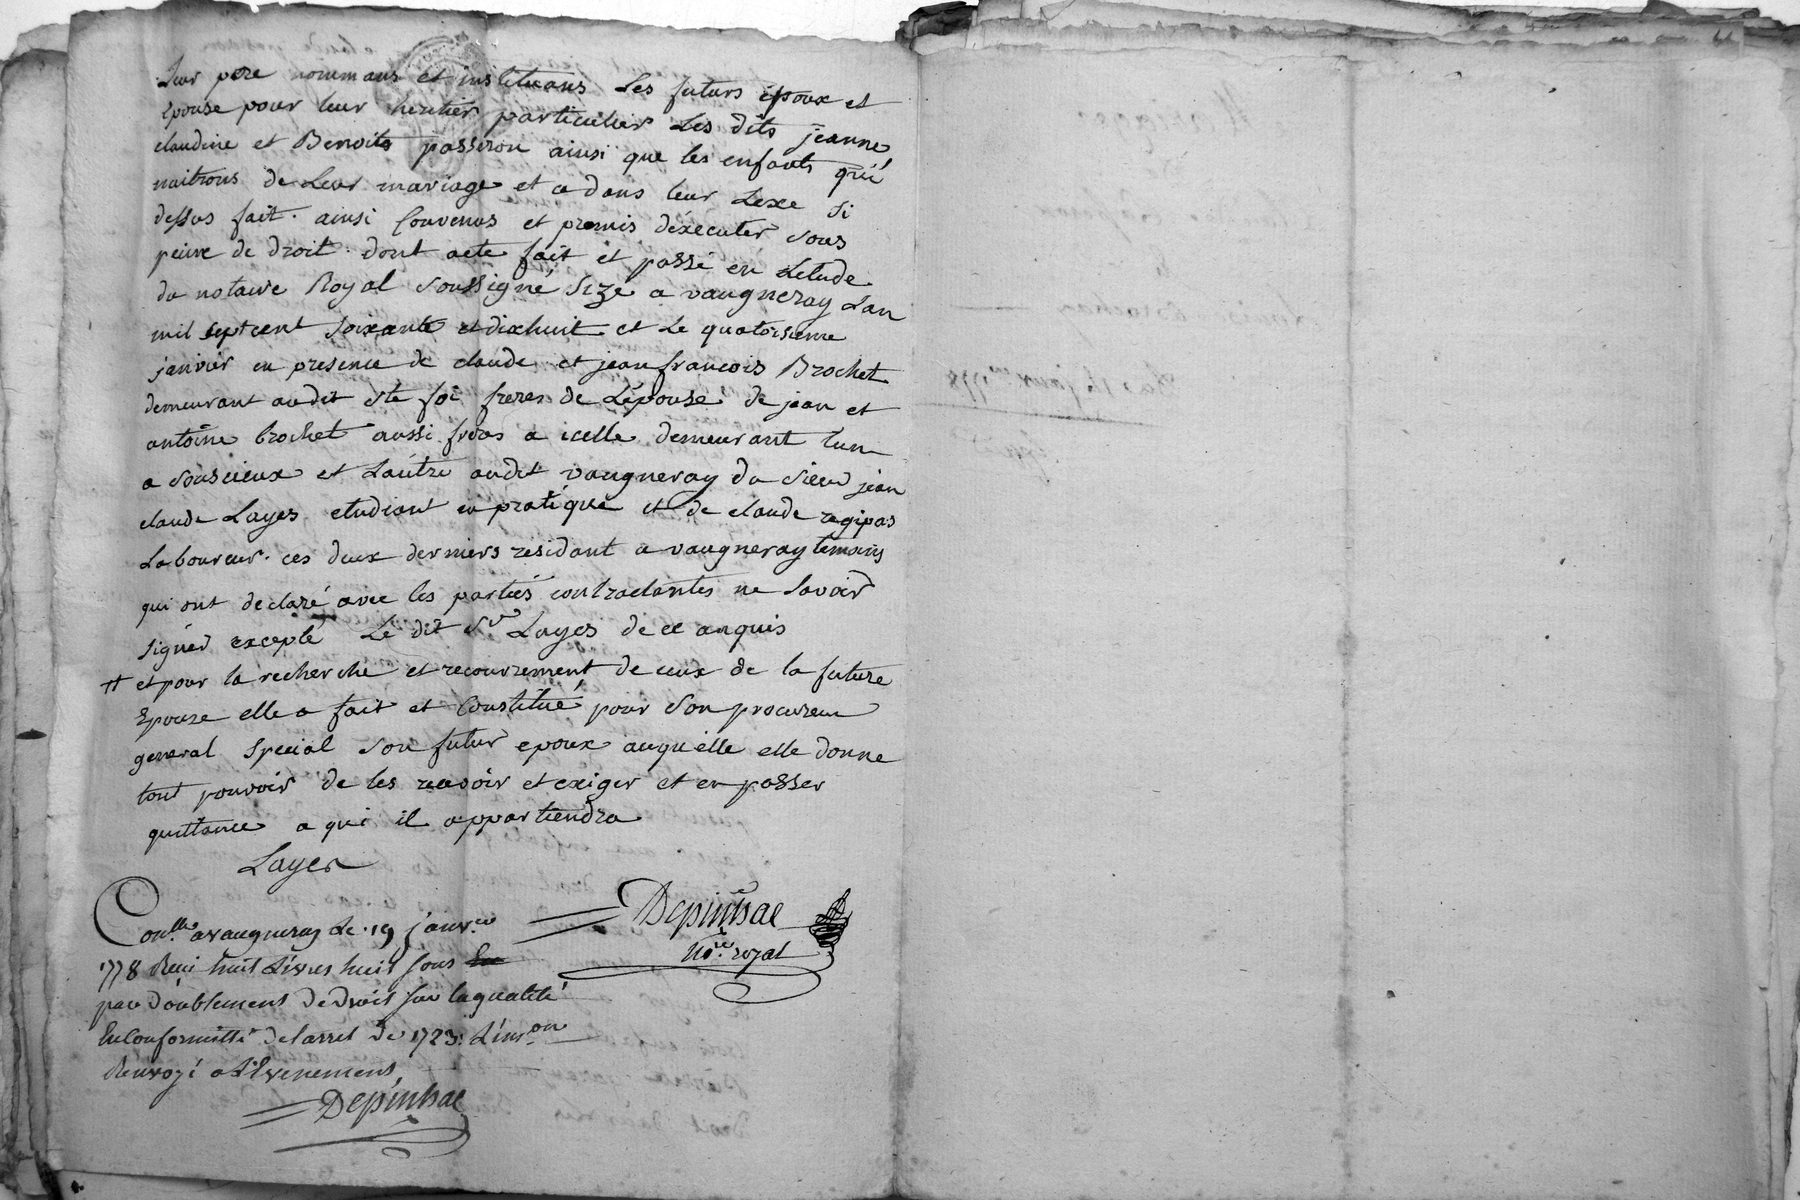 Leur pere nommans et instituans Les futurs époux et
Epouse pour leur heritier particulier Les dits jeanne
claudine et Benoits passeron ainsi que les enfants qui
naitrons de Leur mariage et a dans leur Lexe Si
dessus fait. ainsi Convenus et promis déxécuter sous
peine de droit. dont acte fait et passé en Letude
du notaire Royal soussigné Size a vaugneray Lan
mil septcent soixante et dixhuit et Le quatorsieme
janvier en presence de claude et jeanfrancois Brochet
demeurant audit ste foi freres de Lépouse de jean et
antoine brochet aussi freres a icelle demeurant Lun
a Soucieux et Lautre audit vaugneray du sieur jean
claude Layes etudiant en pratique et de claude regipas
Laboureur. ces deux derniers residant a vaugneray temoins
qui ont declaré avec les parties contractantes ne Savoir
signer excepté Le dit Sr Layes de ce anquis
# et pour la recherche et recouvrement de ceux de la future
Epouse elle a fait et Constitué pour Son procureur
general Special Son futur epoux auquelle elle donne
tout pouvoir de les recevoir et exiger et en passer
quittance a qui il appartiendra
Layes
Depinhac
Nore royal
Conllé a vaugneray Le 19 janver
1778 Recu huit Livres huit sous
par doublement de droit sur la qualité
En Conformitté de l'arret de 1723. L'inson
Renvoyé a L'Evenement
Depinhac
1778